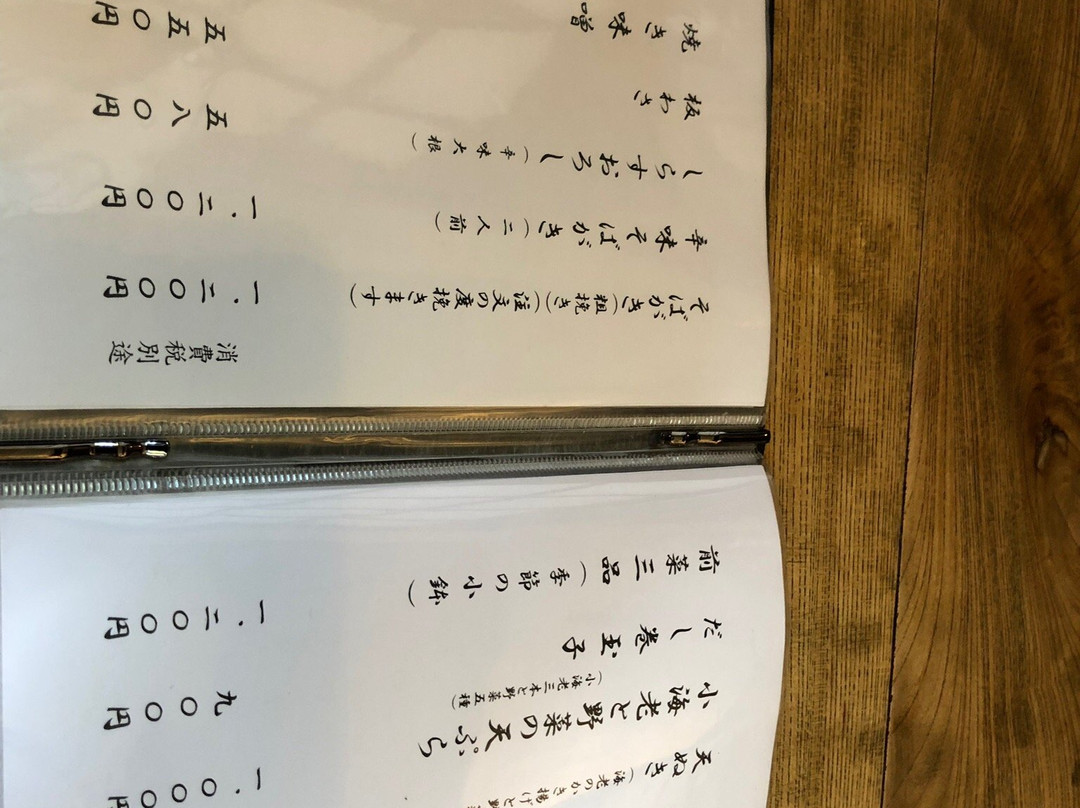 天ぬき（海老のかき揚げと野
小海老と野菜の天ぷら
（小海老三本と野菜五種）
一.〇〇〇円
だし巻玉子
九〇〇円
前菜三品（季節の小鉢）
一.二〇〇円
消費税別途
そばがき（粗挽き）（注文の度挽きます）
一.二〇〇円
辛味そばがき（二人前）
一.二〇〇円
しらすおろし（辛味大根）
五八〇円
板わさ
五五〇円
焼き味噌